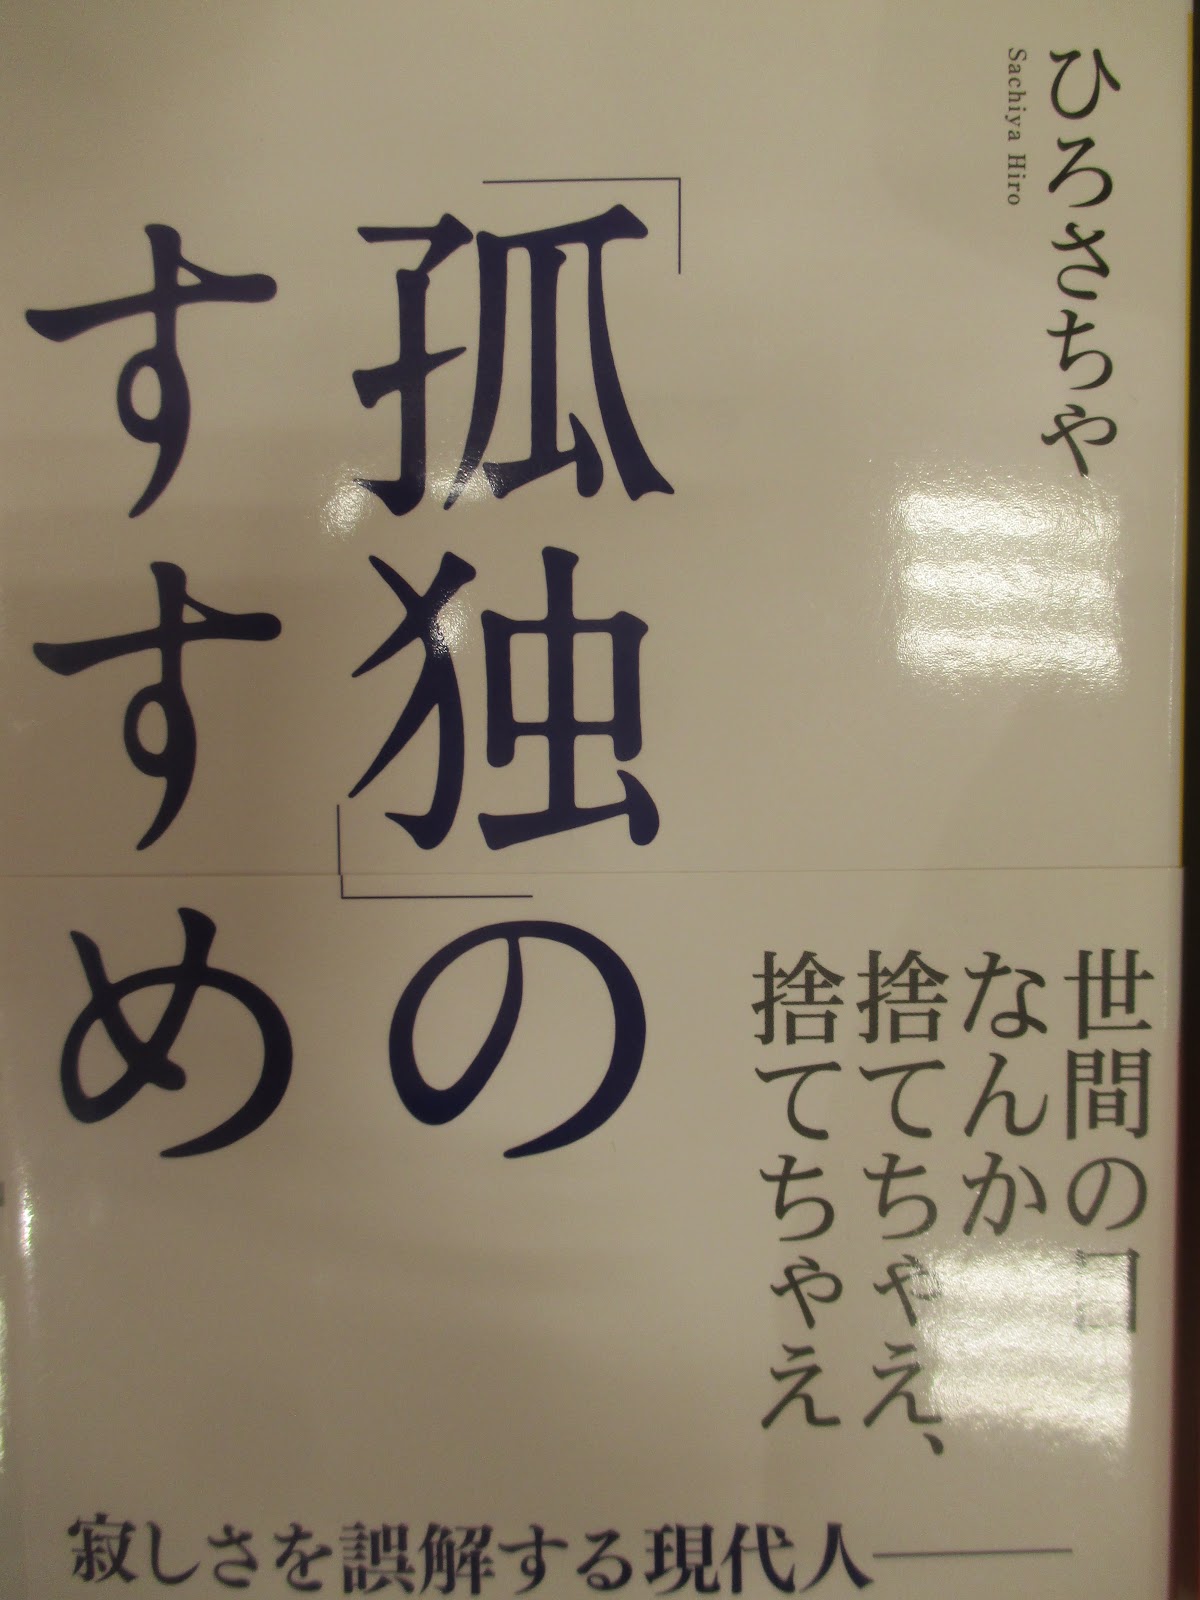 ひろさちや
Sachiya Hiro
「孤独」の
すすめ
世間の目
なんか
捨てちゃえ、
捨てちゃえ
寂しさを誤解する現代人――